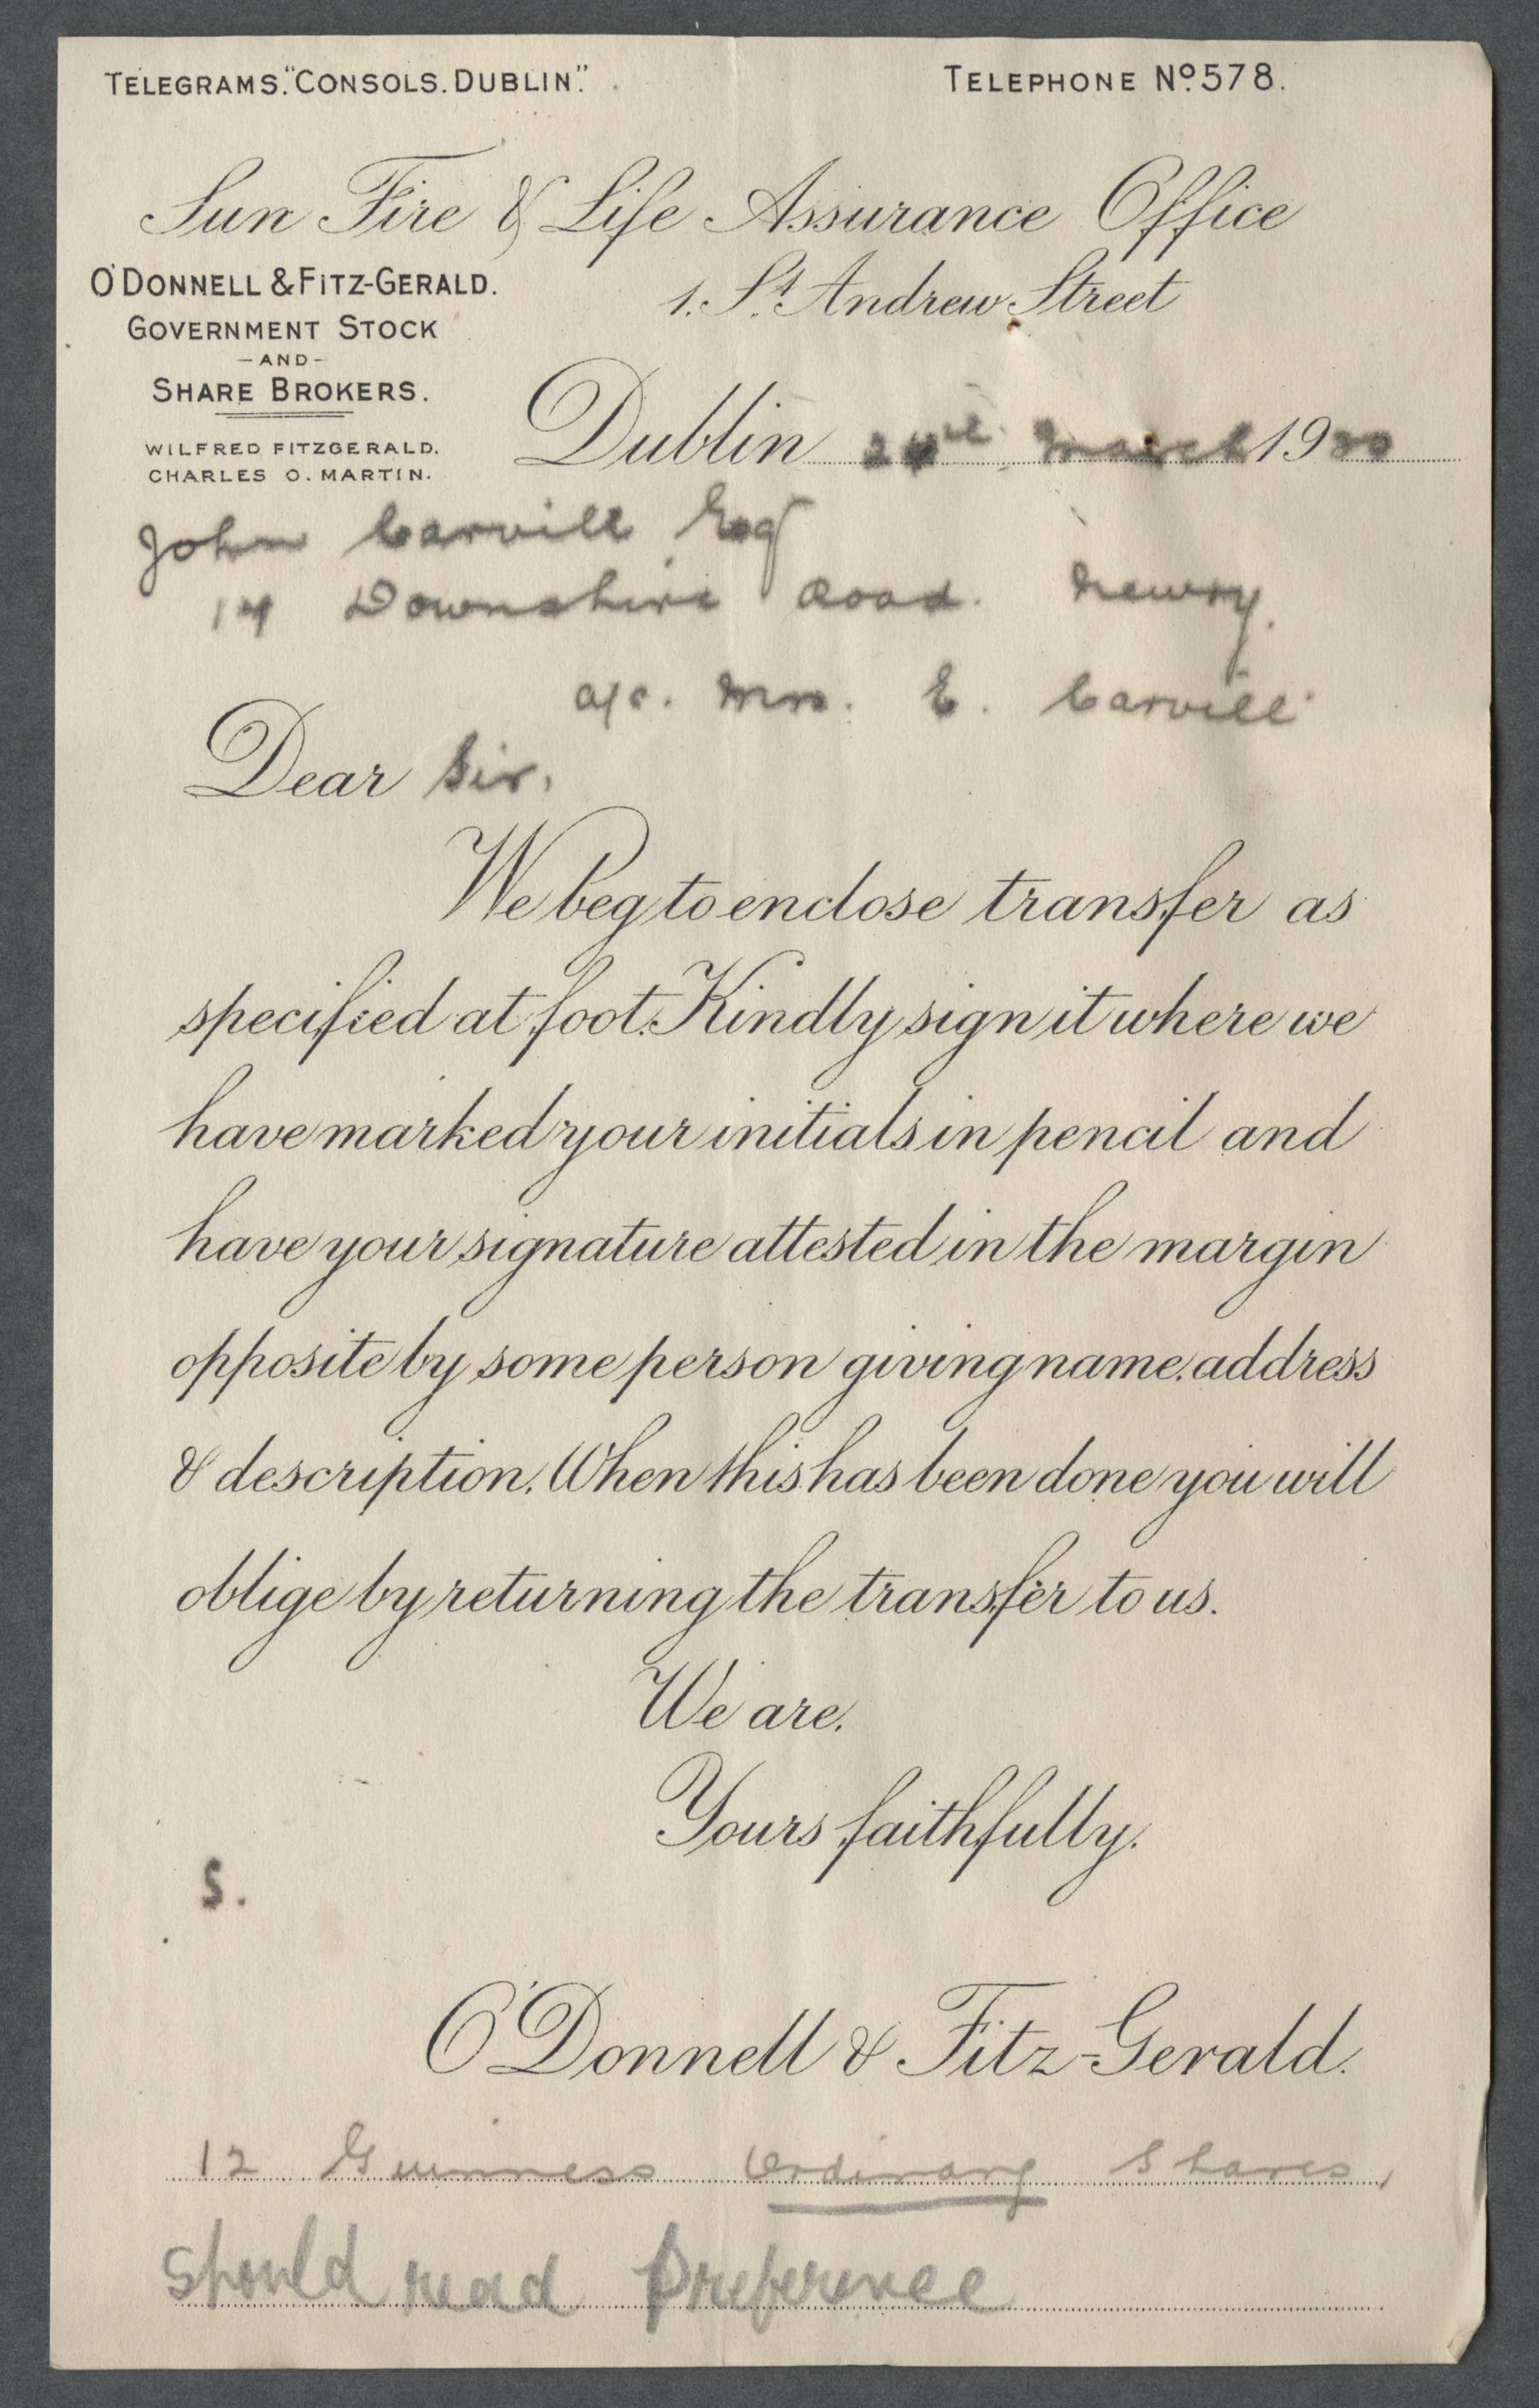 TELEGRAMS. "CONSOLS. DUBLIN."
TELEPHONE No. 578.
Sun Fire & Life Assurance Office
O'DONNELL & FITZ-GERALD.
1. St. Andrew Street
GOVERNMENT STOCK
- AND -
SHARE BROKERS.
Dublin March 19
WILFRED FITZGERALD.
CHARLES O. MARTIN.
John Carvill Esq
14 Downshire Road. Newry.
a/c. Mrs. E. Carvill
Dear Sir,
We beg to enclose transfer as
specified at foot. Kindly sign it where we
have marked your initials in pencil and
have your signature attested in the margin
opposite by some person giving name, address
& description. When this has been done you will
oblige by returning the transfer to us.
We are,
Yours faithfully,
S.
O'Donnell & Fitz-Gerald.
12 Guinness Ordinary Shares,
Should read Preference